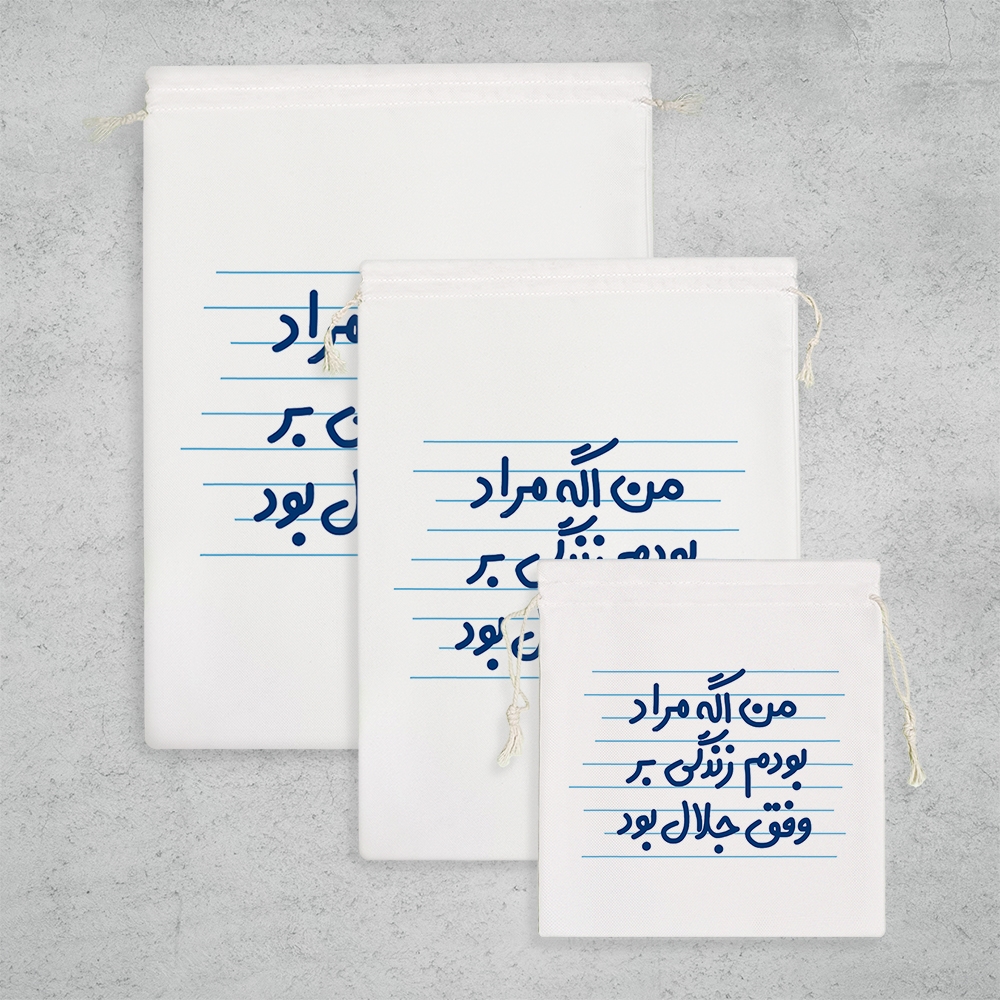 مراد
بر
بود
من اگه مراد
بودم زندگی بر
بود
من اگه مراد
بودم زندگی بر
وفق جلال بود